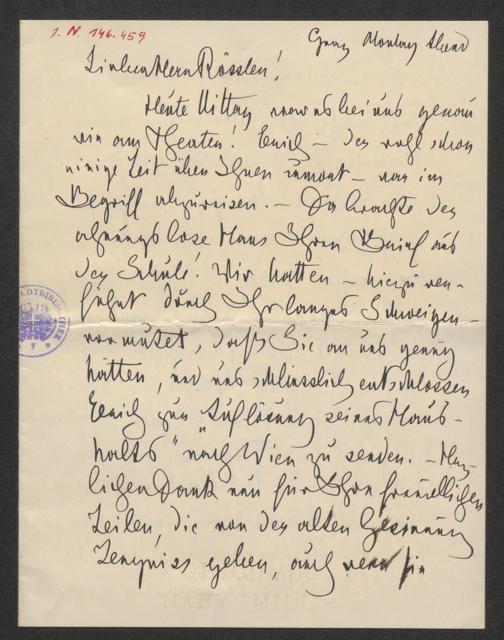 J. N. 146.459
Graz Montag Abend
Lieber Herr Rösslen!
Heute Mittag war es bei uns genau
wie am Theater! Erich – der wohl schon
einige Zeit über Ihnen – war im
Begriff abzureisen. – Da brachte der
ahnungslose Hans Ihren Brief aus
der Schule! Wir hatten – hiezu ver-
führt durch Ihr langes Schweigen –
vermutet, daß Sie an uns genug
hätten, und uns schliesslich entschlossen
Erich zur „Auflösung seines Haus-
halts" nach Wien zu senden. – Herz-
lichen Dank nun für Ihre freundlichen
Zeilen, die von der alten Gesinnung
Zeugniss geben, auch wenn Sie
STADTBIBLIOTHEK